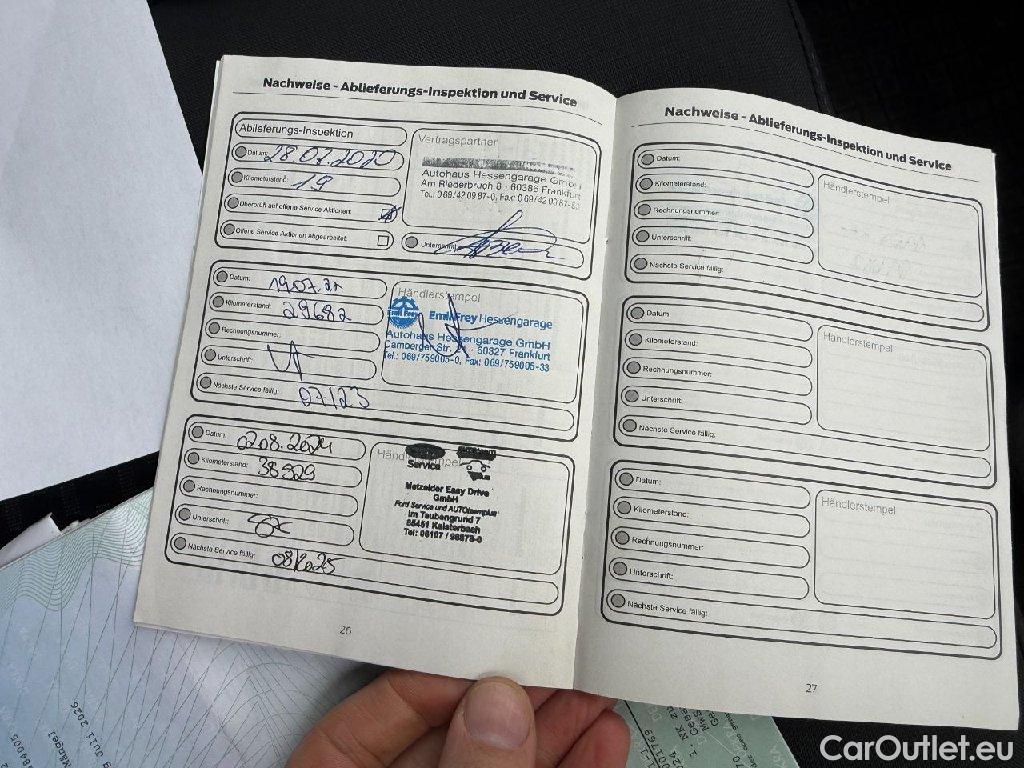 Nachweise - Ablieferungs-Inspektion und Service
Ablieferungs-Inspektion
Vertragspartner
Datum: 28.02.2020
Kilometerstand: 19
Autohaus Hessengarage GmbH
Am Riederbruch 8 · 60386 Frankfurt
Übersicht auf offene Service Aktionen
Offene Service Aktionen abgearbeitet
Unterschrift
Datum: 19.07.21
Kilometerstand: 29682
Rechnungsnummer:
Unterschrift:
Nächste Service fällig: 07/23
Händlerstempel
Emil Frey
Emil Frey Hessengarage
Autohaus Hessengarage GmbH
Camberger Str. 21, 60327 Frankfurt
Tel.: 069/759005-0, Fax: 069/759005-33
Datum: 208.2024
Kilometerstand: 38929
Rechnungsnummer:
Unterschrift:
Nächste Service fällig: 08/2025
Händlerstempel
Service
Metzelder Easy Drive
GmbH
Ford Service und AUTOtemplus
Im Taubengrund 7
65451 Kelsterbach
Tel: 06107 / 98878-0
26
Nachweise - Ablieferungs-Inspektion und Service
Datum:
Kilometerstand:
Rechnungsnummer:
Unterschrift:
Nächste Service fällig:
Händlerstempel
Datum
Kilometerstand:
Rechnungsnummer:
Unterschrift:
Nächste Service fällig:
Händlerstempel
Datum:
Kilometerstand:
Rechnungsnummer:
Unterschrift:
Nächste Service fällig:
Händlerstempel
27
CarOutlet.eu